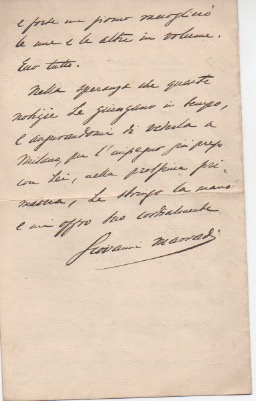 e forse un giorno raccoglierò
le une e le altre in volume.
Ecco tutto.
Nella speranza che queste
notizie Le giungano in tempo,
e augurandomi di vederla a
Milano, per l'impegno già preso
con Lei, nella prossima pri-
mavera, Le stringo la mano
e mi offro Suo cordialmente
Giovanni Marradi